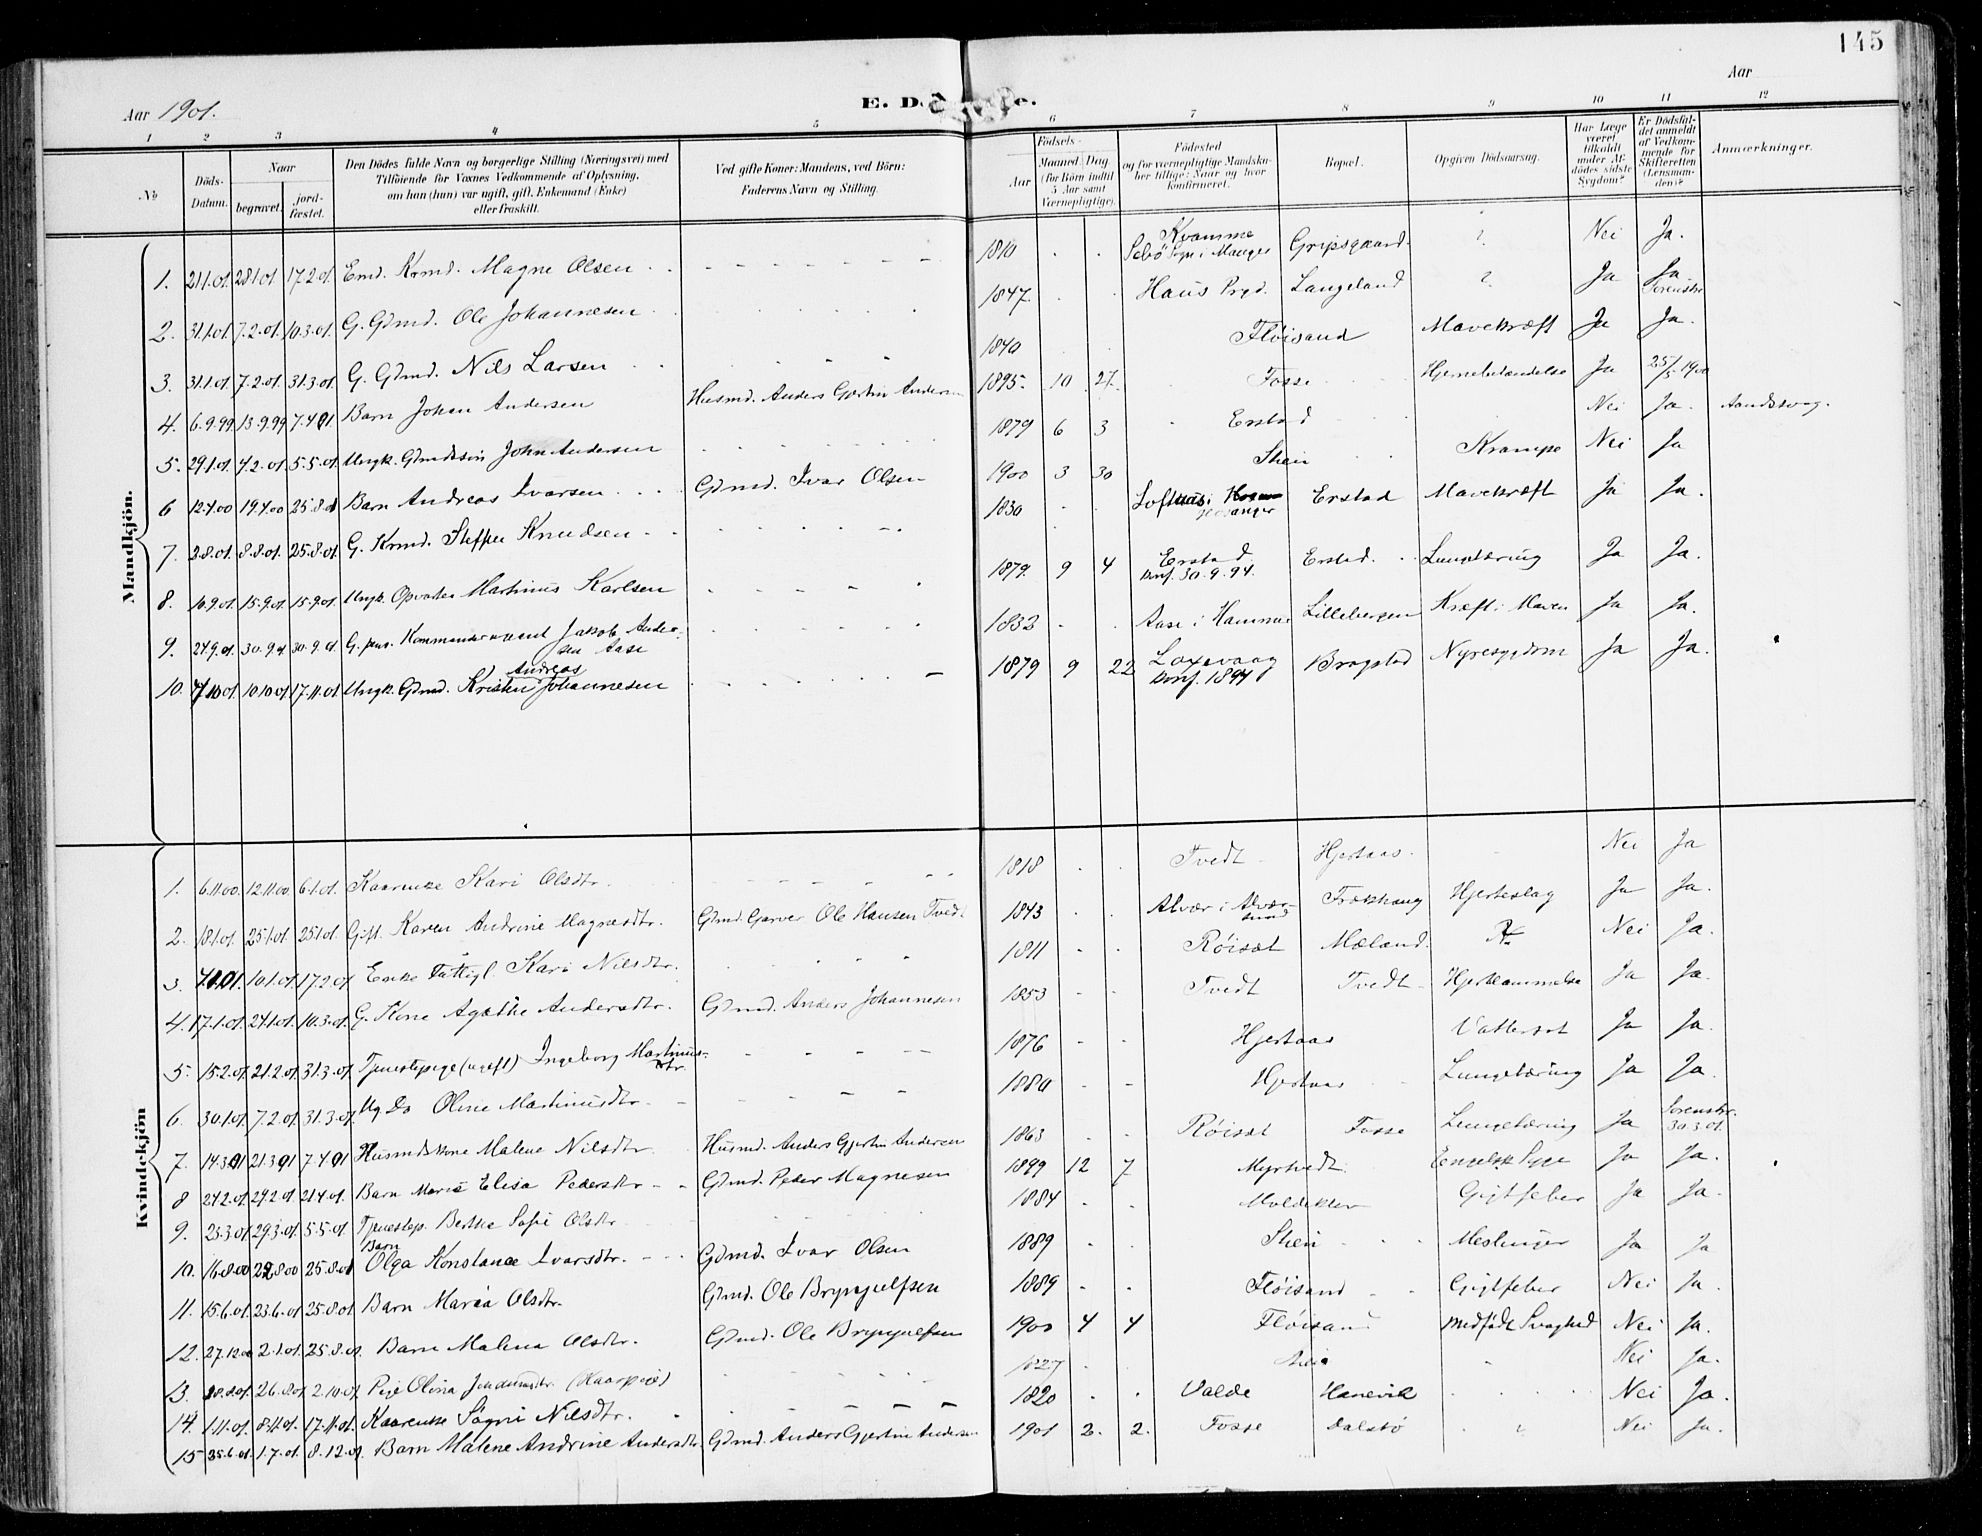 145
Aar 1901.
E. D
Aar
1 2 3 4 5 6 7 8 9 10 11 12
No
Döds-Datum.
Naar
begravet.
jord-fæstet.
Den Dödes fulde Navn og borgerlige Stilling (Næringsvei) med
Tilföiende for Voxnes Vedkommende af Oplysning,
om han (hun) var ugift, gift, Enkemand (Enke)
eller fraskilt.
Ved gifte Koner: Mandens, ved Börn:
Faderens Navn og Stilling.
Födsels-
Aar
Maaned Dag
(for Börn indtil
5 Aar samt
Værnepligtige).
Födested
og for værnepligtige Mandska-
ber tillige: Naar og hvor
konfirmeret.
Bopæl.
Opgiven Dödsaarsag.
Har Læge
været
tilkaldt
under Af-
dödes sidste
Sygdom?
Er Dödsfal-
det anmeldt
af Vedkom-
mende for
Skifteretten
(Lensman-
den)?
Anmærkninger.
Mandkjön.
1. 21.1.01. 28.1.01 17.2.01 Emd. Krmd. Magne Olsen 1810 Kvamme Sebö Sogn i Manger Gripsgaard ? Nei Ja.
2. 31.1.01. 7.2.01. 10.3.01. G. Gdmd. Ole Johannesen 1847. Haus Prgd. Langeland ? Ja Ja Sorenskr
3. 31.1.01 7.2.01. 31.3.01. G. Gdmd. Nils Larsen 1840 Flöisand Mavekræft Ja Ja.
4. 6.9.99. 13.9.99 7.4.01 Barn Johan Andersen Husmd. Anders Gjertin Andersen 1895. 10 27. Fosse Hjernebetændelse Ja 25/5 1900
5. 29.1.01. 4.2.01. 5.5.01. Ungk. Gdmdssön John Andersen 1879 6 3 Erstad Nei Ja. Aandssvag.
6 12.4.00 19.4.00 25.8.01 Barn Andreas Ivarsen Gdmd. Ivar Olsen 1900 3 30 Skeie Krampe Nei Ja
7. 2.8.01. 8.8.01. 25.8.01. G. Krmd. Steffen Knudsen 1830 Loftaas i Hosanger Erstad Mavekræft Ja Ja.
8. 10.9.01. 15.9.01. 15.9.01. Ungk. Opvarter Martinus Karlsen 1879. 9 4 Erstad Konf. 30.9.94. Erstad. Lungetæring Ja Ja.
9. 24.9.01. 30.9.01 30.9.01. G. pens. Kommandersergent Jakob Andersen Aase 1832 Aase i Hammer Lillebergen Kræft i Maven Ja Ja.
10. 4.10.01. 10.10.01 17.11.01. Ungk. Gdmd. Kristen Andreas Johannesen 1879 9 22 Loxevaag Konf. 1894 Bragstad Nyresygdom Ja Ja.
Kvindekjön
1. 6.11.00. 12.11.00. 6.1.01. Kaarenke Kari Olsdtr. 1818 Tvedt Hjertaas. Nei Ja
2. 18.1.01. 25.1.01. 25.1.01. Gift. Karen Andrine Magnesdtr. Gdmd. Garver Ole Hansen Tvedt 1843 Alvær i Alværsund Hjerteslag Ja Ja.
3. 4.1.01. 10.1.01. 17.2.01 Enke Fattigl. Kari Nilsdtr. 1811 Röisæt Mæland. Nei Ja.
4. 17.1.01. 24.1.01. 10.3.01. G. Kone Agæthe Andersdtr. Gdmd. Anders Johannesen 1853 Tvedt Tvedt Hjertelammelse Ja Ja.
5. 15.2.01. 21.2.01. 31.3.01. Tjenestepige (ugift) Ingeborg Martinusdtr. 1876 Hjertaas Vattersot Ja Ja.
6. 30.1.01. 7.2.01. 31.3.01. Ug Do Oline Martinusdtr. 1880 Hjertaas Lungetæring Ja Ja.
7. 14.3.01 21.3.01 7.4.01 Husmdskone Malene Nilsdtr. Husmd. Anders Gjertin Andersen 1863 Röisæt Fosse Lungetæring Ja Sorenskr. 30.3.01.
8 24.2.01. 29.2.01 21.4.01. Barn Marie Elisa Pedersdtr Gdmd. Peder Magnesen 1899 12 7 Myrtvedt Engelsk Syge Ja Ja.
9. 23.3.01. 29.3.01 5.5.01. Tjenestep. Berthe Sofie Olsdtr. 1884 Moldeklev Gigtfeber Ja Ja.
10. 16.8.00 22.8.00 25.8.01 Barn Olga Konstance Ivarsdtr. Gdmd. Ivar Olsen 1889 Skeie Meslinger Ja Ja
11. 15.6.01. 23.6.01 25.8.01. Barn Maria Olsdtr. Gdmd. Ole Brynjulfsen 1889 Flöisand Gigtfeber Nei Ja.
12. 27.12.00 2.1.01. 25.8.01. Barn Malena Olsdtr. Gdmd. Ole Brynjulfsen 1900 4 4 Flöisand Medfödt Svaghed Nei Ja.
13. 26.8.01 2.10.01. Pige Olina 1827 Nei Ja.
14. 1.11.01. 8.11.01. 17.11.01. Kaarenke Sögni Nilsdtr. 1820 Valde Hanevik Nei Ja.
15 25.6.01. 1.7.01. 8.12.01. Barn Malene Andrine Andersdtr. Gdmd. Anders Gjertin Andersen 1901 2. 2. Fosse Dalstö ? Nei Ja.